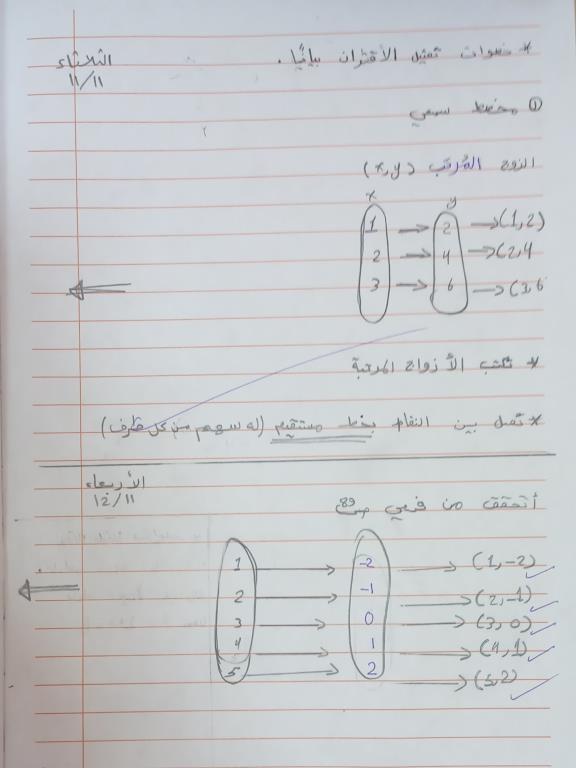 * خطوات تمثيل الأقتران بيانيًا.
الثلاثاء
١١/١١
① مخطط سهمي
الزوج المُرتب (x,y)
x y
1 → 2 → (1,2)
2 → 4 → (2,4
3 → 6 → (3,6
* نكتب الأزواج المرتبة
* نصل بين النقاط بخط مستقيم (له سهم من كل طرف)
الأربعاء
١٢/١١
أتحقق من فهمي ص89
1 → -2 → (1,-2)
2 → -1 → (2,-1)
3 → 0 → (3,0)
4 → 1 → (4,1)
5 → 2 → (5,2)